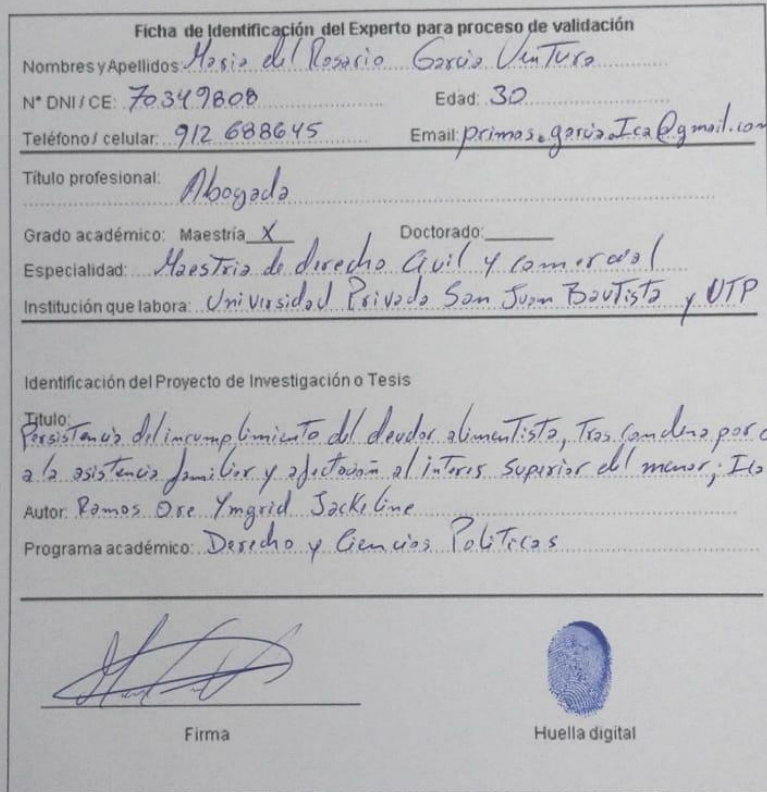 Ficha de Identificación del Experto para proceso de validación
Nombres y Apellidos: Maria del Rosario Garcia Ventura
N° DNI / CE: 70349808 Edad: 30
Teléfono / celular: 912 688645 Email: primos.garcia.Ica@gmail.com
Título profesional: Abogada
Grado académico: Maestría X Doctorado:
Especialidad: Maestria de derecho Civil y comercial
Institución que labora: Universidad Privada San Juan Bautista y UTP
Identificación del Proyecto de Investigación o Tesis
Titulo:
Persistencia del incumplimiento del deudor alimentista, Tras condena por o
a la asistencia familiar y afectación al interes superior del menor; Ica
Autor: Ramos Ore Ymgrid Jackeline
Programa académico: Derecho y Ciencias Politicas
Firma Huella digital